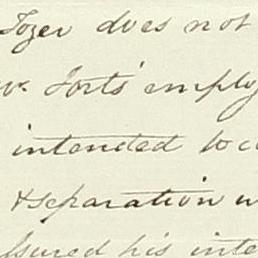 Tozer does not
Forts' employ
intended to
& separation
his inte